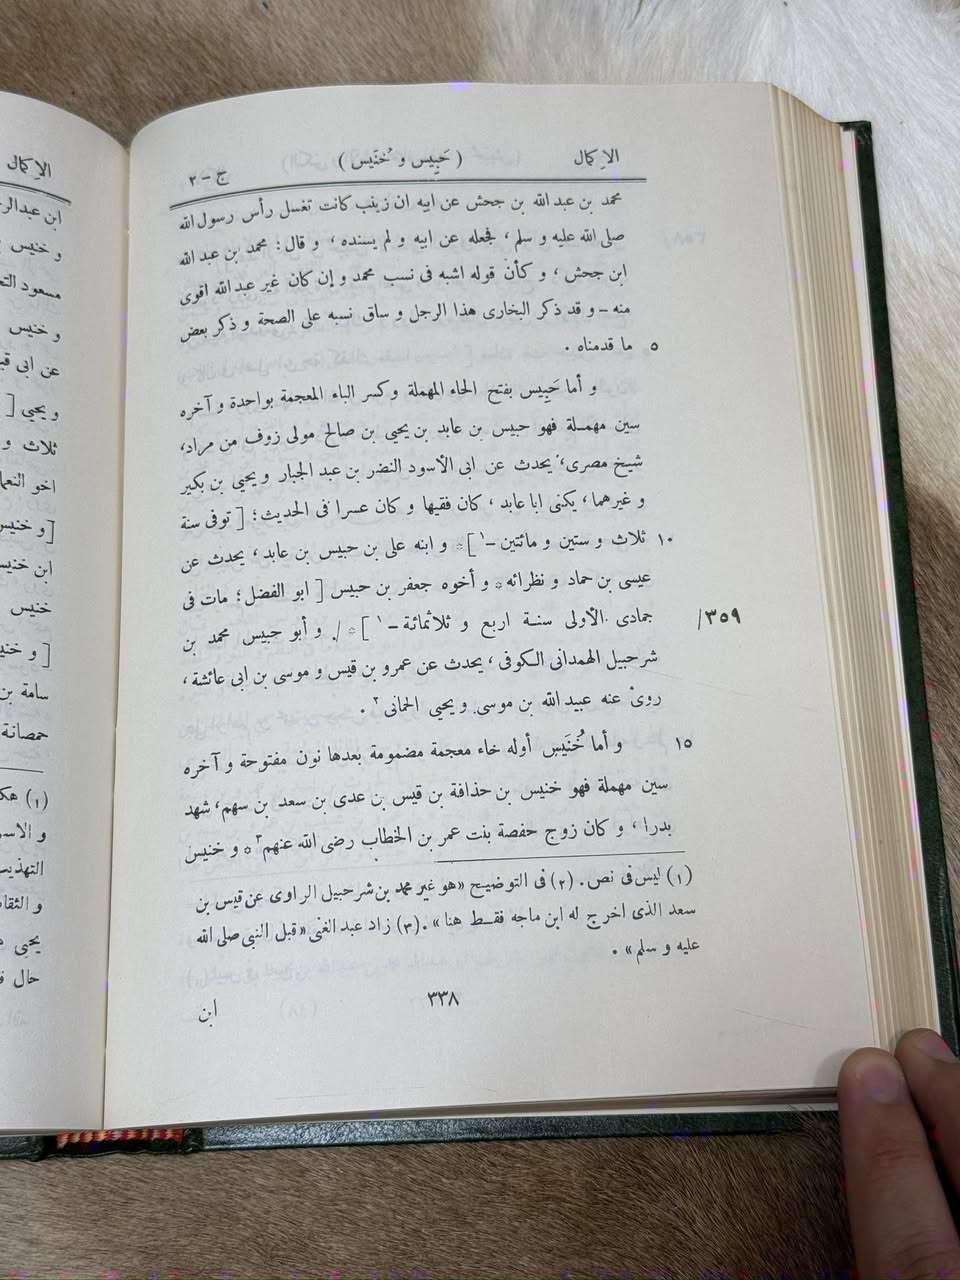 الإكمال ( حَبِيس و خُنَيس ) ج – ٢
محمد بن عبد الله بن جحش عن ابيه ان زينب كانت تغسل رأس رسول الله
صلى الله عليه و سلم ، فجعله عن ابيه و لم يسنده ، و قال : محمد بن عبد الله
ابن جحش ، و كأن قوله اشبه فى نسب محمد و إن كان غير عبد الله اقوى
منه – و قد ذكر البخارى هذا الرجل و ساق نسبه على الصحة و ذكر بعض
٥ ما قدمناه .
و أما حَبِيس بفتح الحاء المهملة وكسر الباء المعجمة بواحدة و آخره
سين مهملة فهو حبيس بن عابد بن يحيى بن صالح مولى زوف من مراد،
شيخ مصرى، يحدث عن ابى الأسود النضر بن عبد الجبار و يحيى بن بكير
و غيرهما ، يكنى ابا عابد ، كان فقيها و كان عسرا فى الحديث ؛ [ توفى سنة
١٠ ثلاث و ستين و مائتين –١ ] * و ابنه على بن حبيس بن عابد ، يحدث عن
عيسى بن حماد و نظرائه * و أخوه جعفر بن حبيس [ ابو الفضل ؛ مات فى
٣٥٩/ جمادى الأولى سنة اربع و ثلاثمائة –١ ] * /. و أبو حبيس محمد بن
شرحبيل الهمدانى الكوفى ، يحدث عن عمرو بن قيس و موسى بن ابى عائشة ،
روى عنه عبيد الله بن موسى و يحيى الحمانى ٢ .
١٥ و أما خُنَيس أوله خاء معجمة مضمومة بعدها نون مفتوحة و آخره
سين مهملة فهو خنيس بن حذافة بن قيس بن عدى بن سعد بن سهم ، شهد
بدرا ، و كان زوج حفصة بنت عمر بن الخطاب رضى الله عنهم ٣ * و خنيس
(١) ليس فى نص . (٢) فى التوضيح «هو غير محمد بن شرحبيل الراوى عن قيس بن
سعد الذى اخرج له ابن ماجه فقط هنا» . (٣) زاد عبد الغنى «قبل النبى صلى الله
عليه و سلم» .
٣٣٨
ابن
الإكمال
ابن
و خنيس
مسعود
و خنيس
عن ابى
و يحيى [
ثلاث و
اخو
[ و خنيس
ابن خنيس
خنيس
[ و
سامة بن
حمصانة
(١)
و
و
يحيى
حال